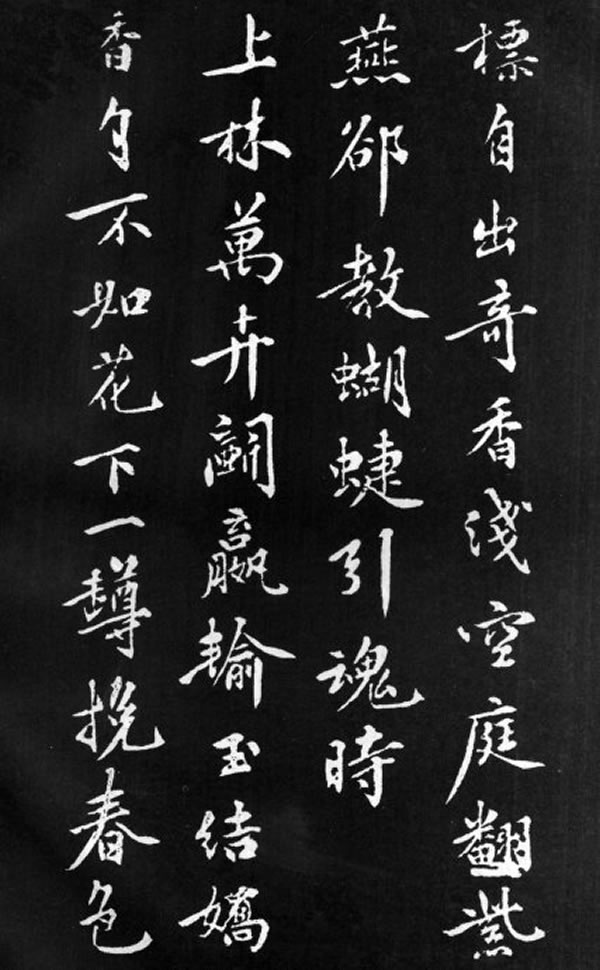 標自出奇香淺空庭翻紫
燕卻教蝴蝶引魂時
上林萬卉鬪贏輸玉結嬌
香自不如花下一罇挽春色